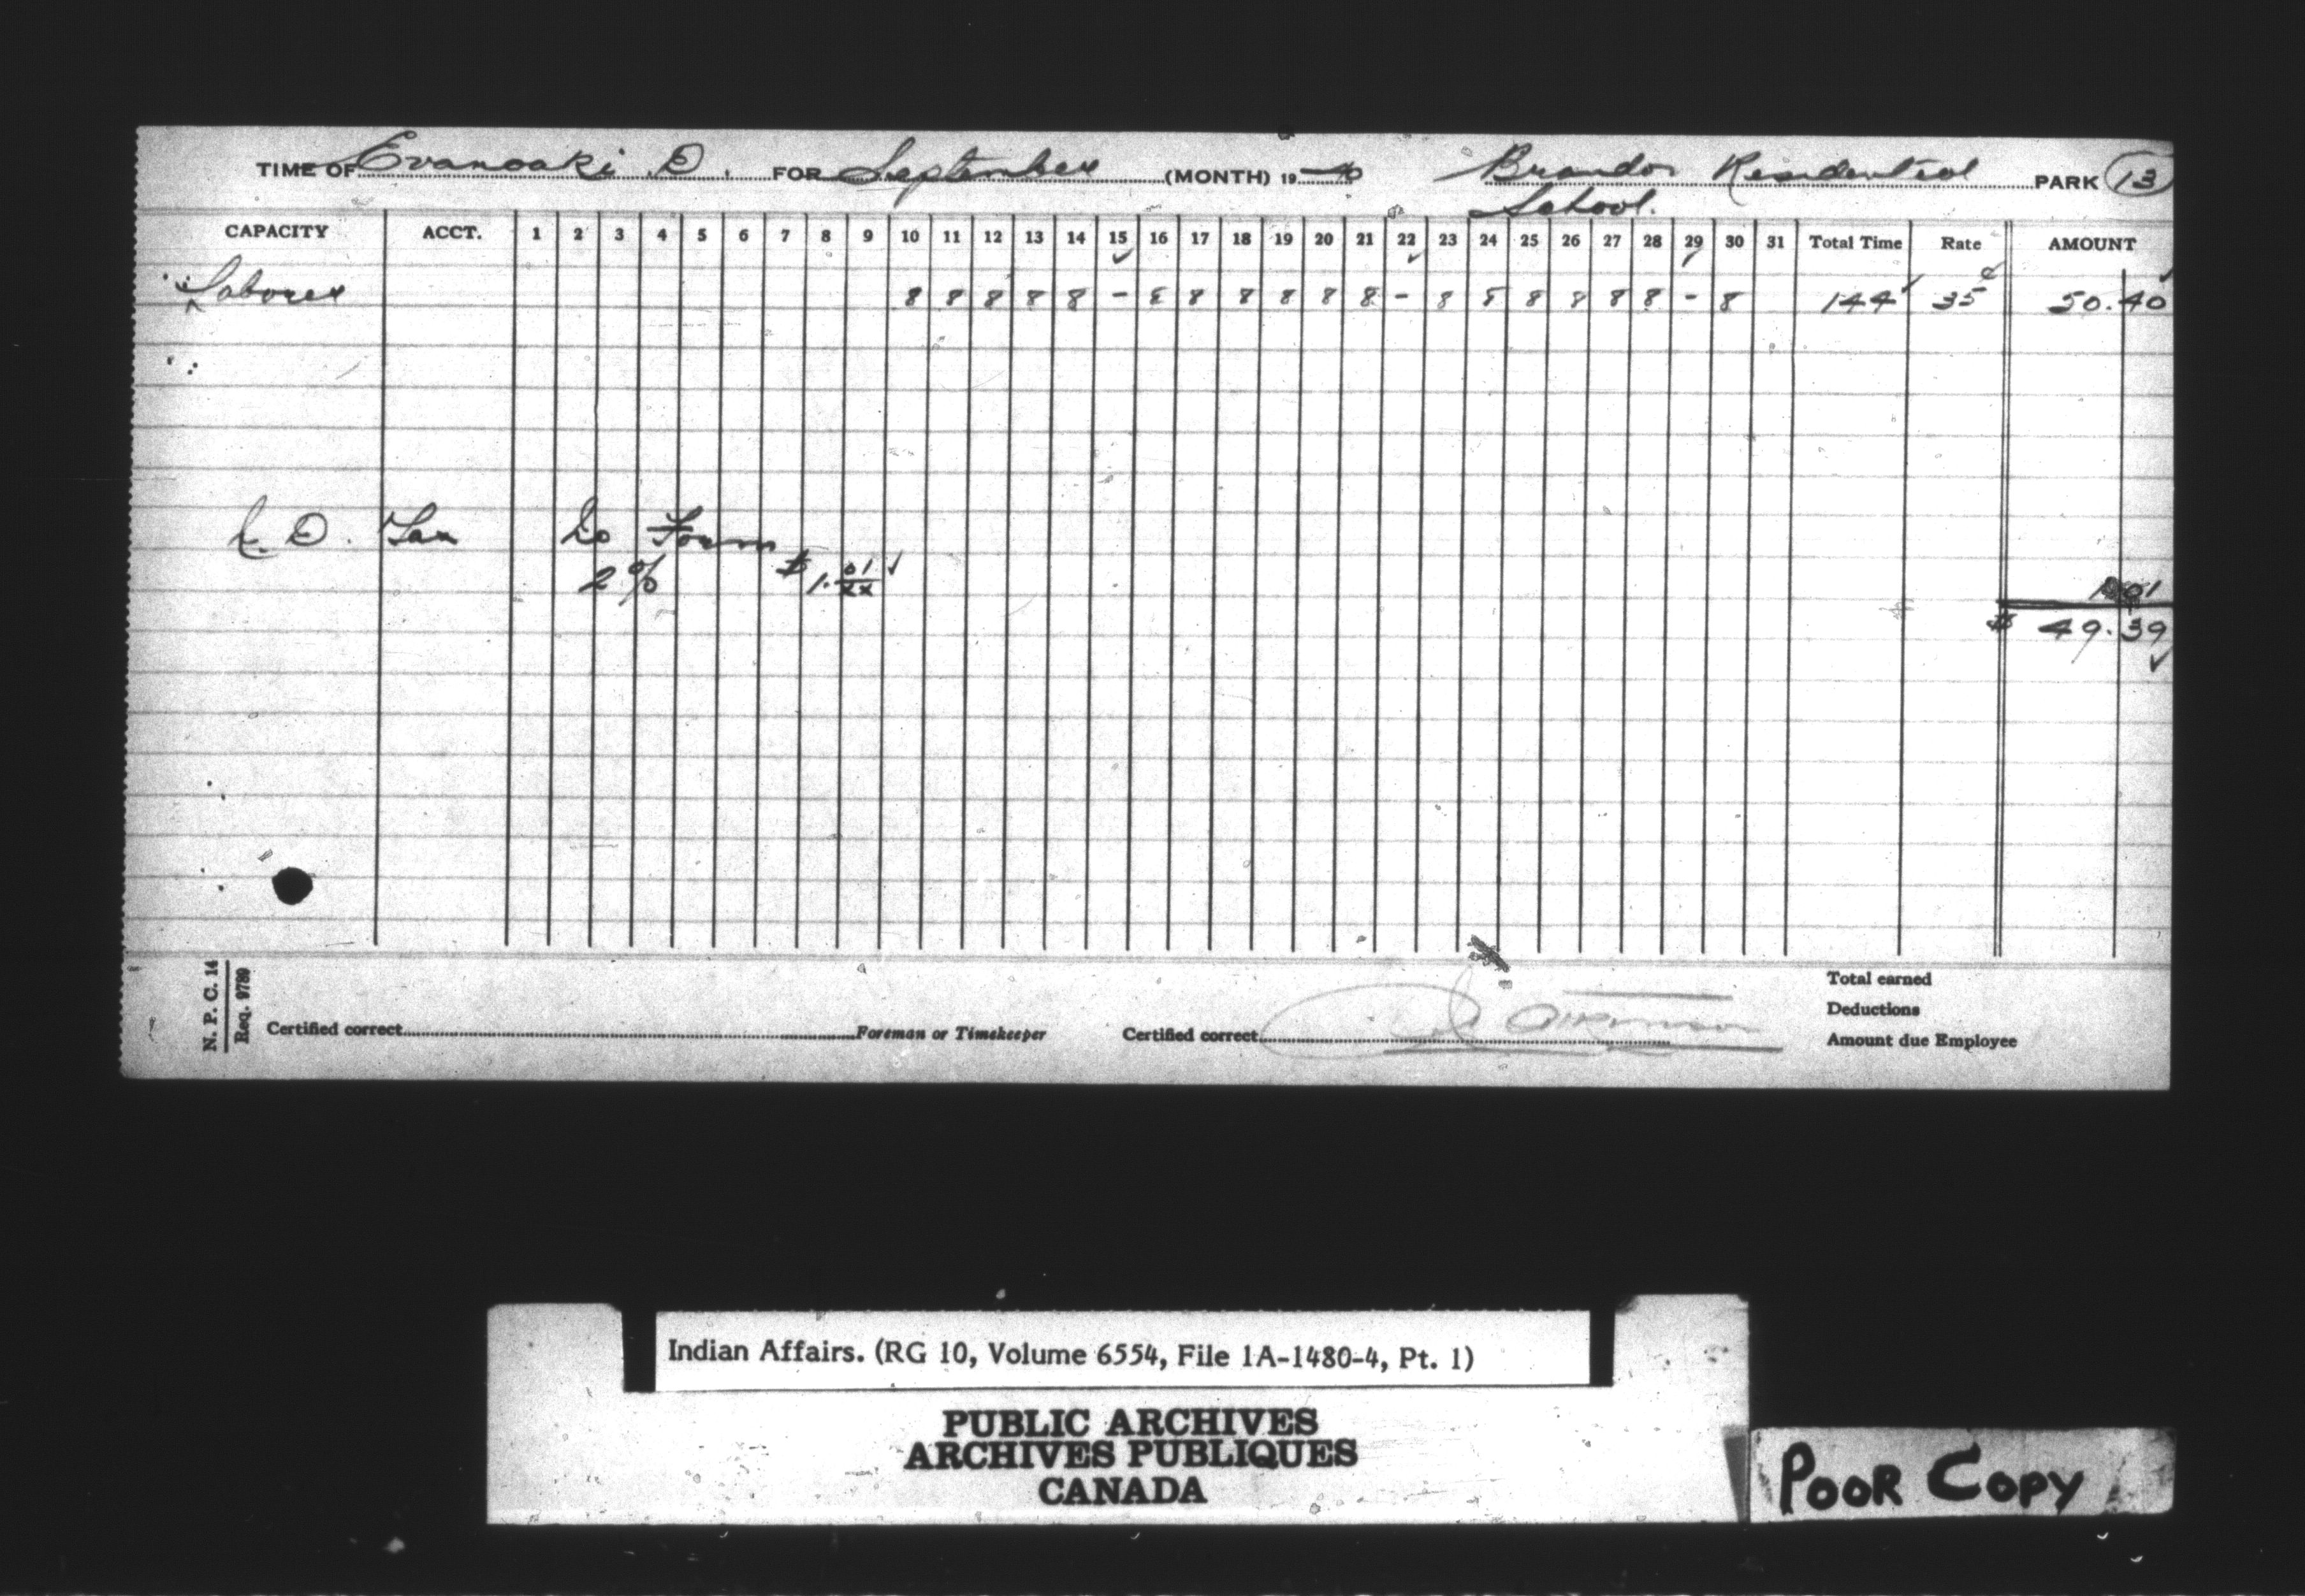 TIME OF Evanoski D. FOR September (MONTH) 1940 Brandon Residential PARK 13
School.
CAPACITY ACCT. 1 2 3 4 5 6 7 8 9 10 11 12 13 14 15 16 17 18 19 20 21 22 23 24 25 26 27 28 29 30 31 Total Time Rate AMOUNT
Laborer 8 8 8 8 8 - 8 8 8 8 8 8 - 8 8 8 8 8 8 - 8 144 35¢ 50.40
D. Tax Form
2% $1.01/xx 1.01
$ 49.39
Total earned
Deductions
Amount due Employee
N. P. C. 14
Req. 9789
Certified correct Foreman or Timekeeper Certified correct Atkinson
Indian Affairs. (RG 10, Volume 6554, File 1A-1480-4, Pt. 1)
PUBLIC ARCHIVES
ARCHIVES PUBLIQUES
CANADA
POOR COPY